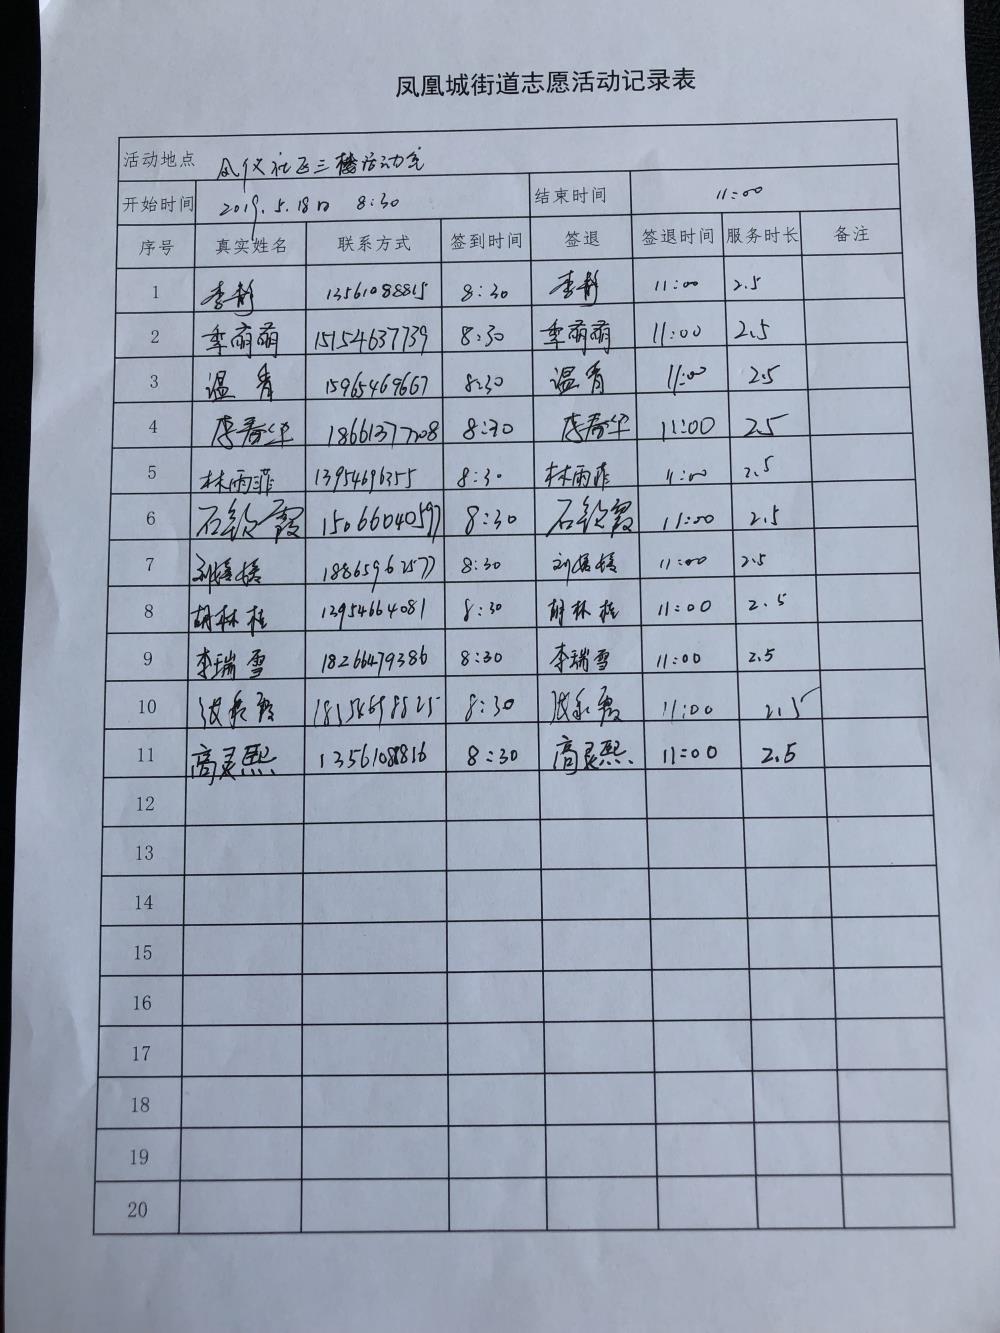 凤凰城街道志愿活动记录表
活动地点 凤仪社区三楼活动室
开始时间 2019.5.18日 8:30 结束时间 11:00
序号 真实姓名 联系方式 签到时间 签退 签退时间 服务时长 备注
1 李静 13561088815 8:30 李静 11:00 2.5
2 季萌萌 15154637739 8:30 季萌萌 11:00 2.5
3 温青 15965469667 8:30 温青 11:00 2.5
4 李春华 18661377208 8:30 李春华 11:00 2.5
5 林雨菲 13954696355 8:30 林雨菲 11:00 2.5
6 石钦霞 15066040597 8:30 石钦霞 11:00 2.5
7 18865962577 8:30 11:00 2.5
8 胡林桂 13954664081 8:30 胡林桂 11:00 2.5
9 李瑞雪 18266479386 8:30 李瑞雪 11:00 2.5
10 18154698825 8:30 11:00 2.5
11 高灵熙 13561088816 8:30 高灵熙 11:00 2.5
12
13
14
15
16
17
18
19
20